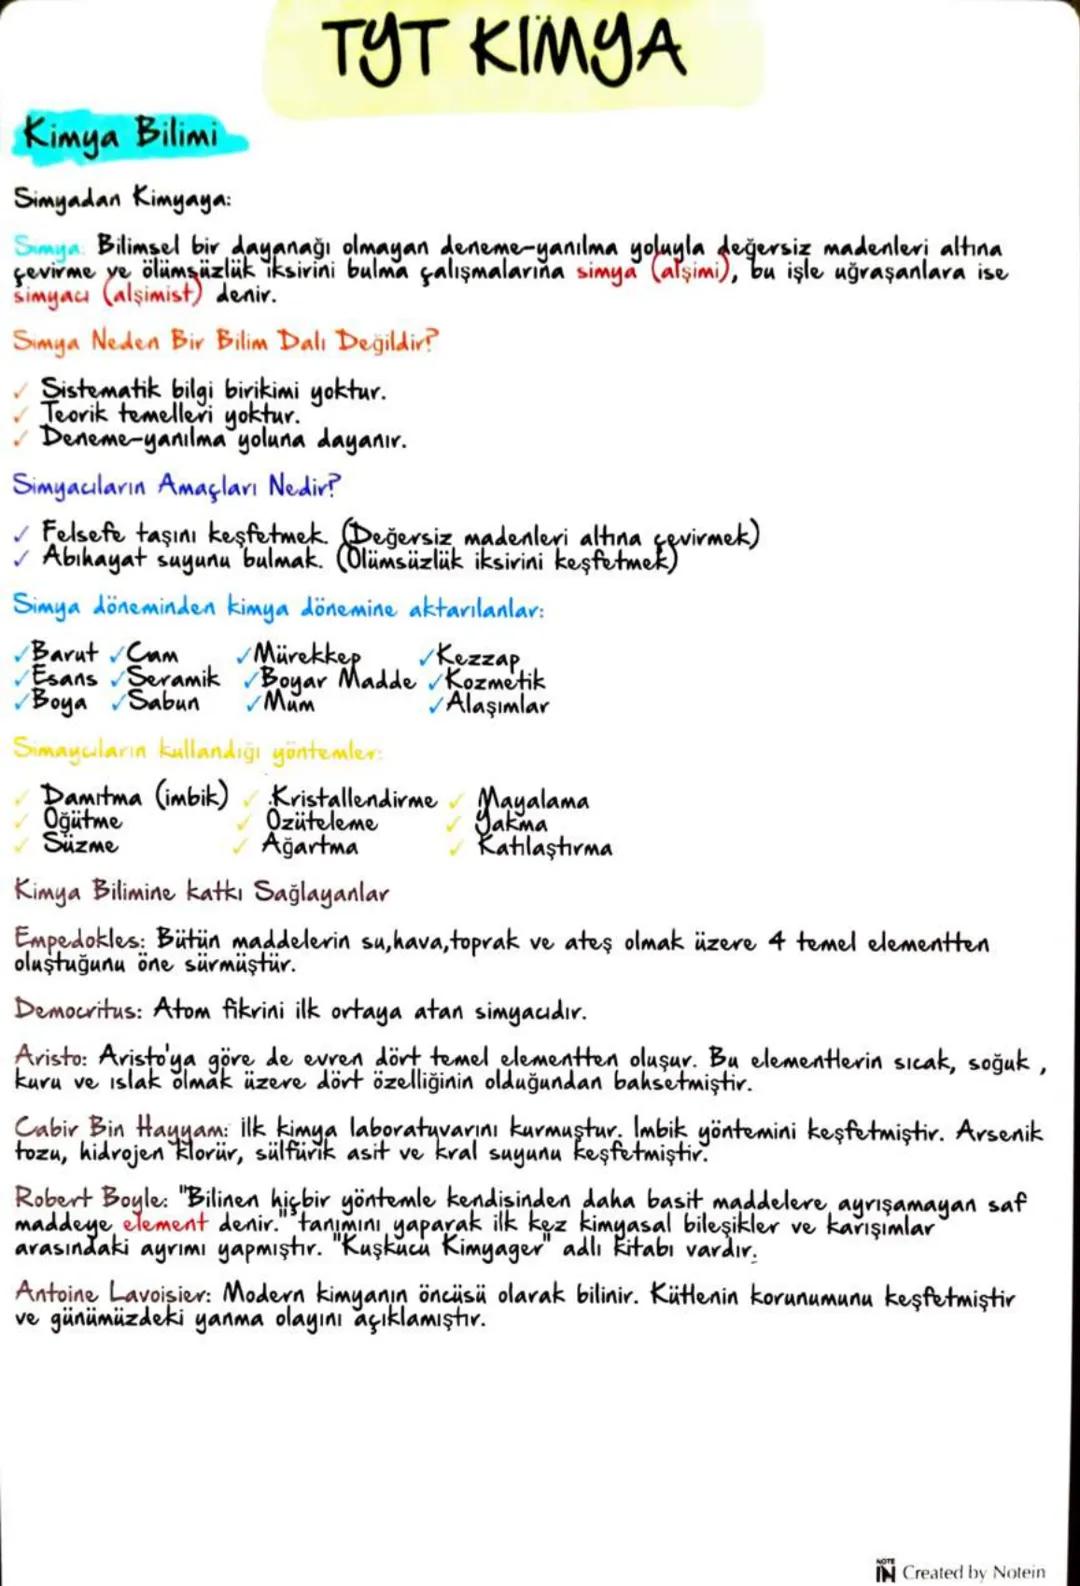 TYT KİMYA
Kimya Bilimi
Simyadan Kimyaya:
Simya: Bilimsel bir dayanağı olmayan deneme-yanılma yoluyla değersiz madenleri altına
çevirme ve ölümsüzlük iksirini bulma çalışmalarına simya (alşimi), bu işle uğraşanlara ise
simyacı (alşimist) denir.
Simya Neden Bir Bilim Dalı Değildir?
✓ Sistematik bilgi birikimi yoktur.
✓ Teorik temelleri yoktur.
✓ Deneme-yanılma yoluna dayanır.
Simyacıların Amaçları Nedir?
✓ Felsefe taşını keşfetmek. (Değersiz madenleri altına çevirmek)
✓ Abıhayat suyunu bulmak. (Ölümsüzlük iksirini keşfetmek)
Simya döneminden kimya dönemine aktarılanlar:
✓Barut ✓Cam ✓Mürekkep ✓Kezzap
✓Esans ✓Seramik ✓Boyar Madde ✓Kozmetik
✓Boya ✓Sabun ✓Mum ✓Alaşımlar
Simaycıların kullandığı yöntemler:
✓ Damıtma (imbik) ✓ .Kristallendirme ✓ Mayalama
✓ Öğütme ✓ Özüteleme ✓ Yakma
✓ Süzme ✓ Ağartma ✓ Katılaştırma
Kimya Bilimine katkı Sağlayanlar
Empedokles: Bütün maddelerin su,hava,toprak ve ateş olmak üzere 4 temel elementten
oluştuğunu öne sürmüştür.
Democritus: Atom fikrini ilk ortaya atan simyacıdır.
Aristo: Aristo'ya göre de evren dört temel elementten oluşur. Bu elementlerin sıcak, soğuk ,
kuru ve ıslak olmak üzere dört özelliğinin olduğundan bahsetmiştir.
Cabir Bin Hayyam: ilk kimya laboratuvarını kurmuştur. İmbik yöntemini keşfetmiştir. Arsenik
tozu, hidrojen klorür, sülfürik asit ve kral suyunu keşfetmiştir.
Robert Boyle: "Bilinen hiçbir yöntemle kendisinden daha basit maddelere ayrışamayan saf
maddeye element denir." tanımını yaparak ilk kez kimyasal bileşikler ve karışımlar
arasındaki ayrımı yapmıştır. "Kuşkucu Kimyager" adlı kitabı vardır.
Antoine Lavoisier: Modern kimyanın öncüsü olarak bilinir. Kütlenin korunumunu keşfetmiştir
ve günümüzdeki yanma olayını açıklamıştır.
NOTE IN Created by Notein